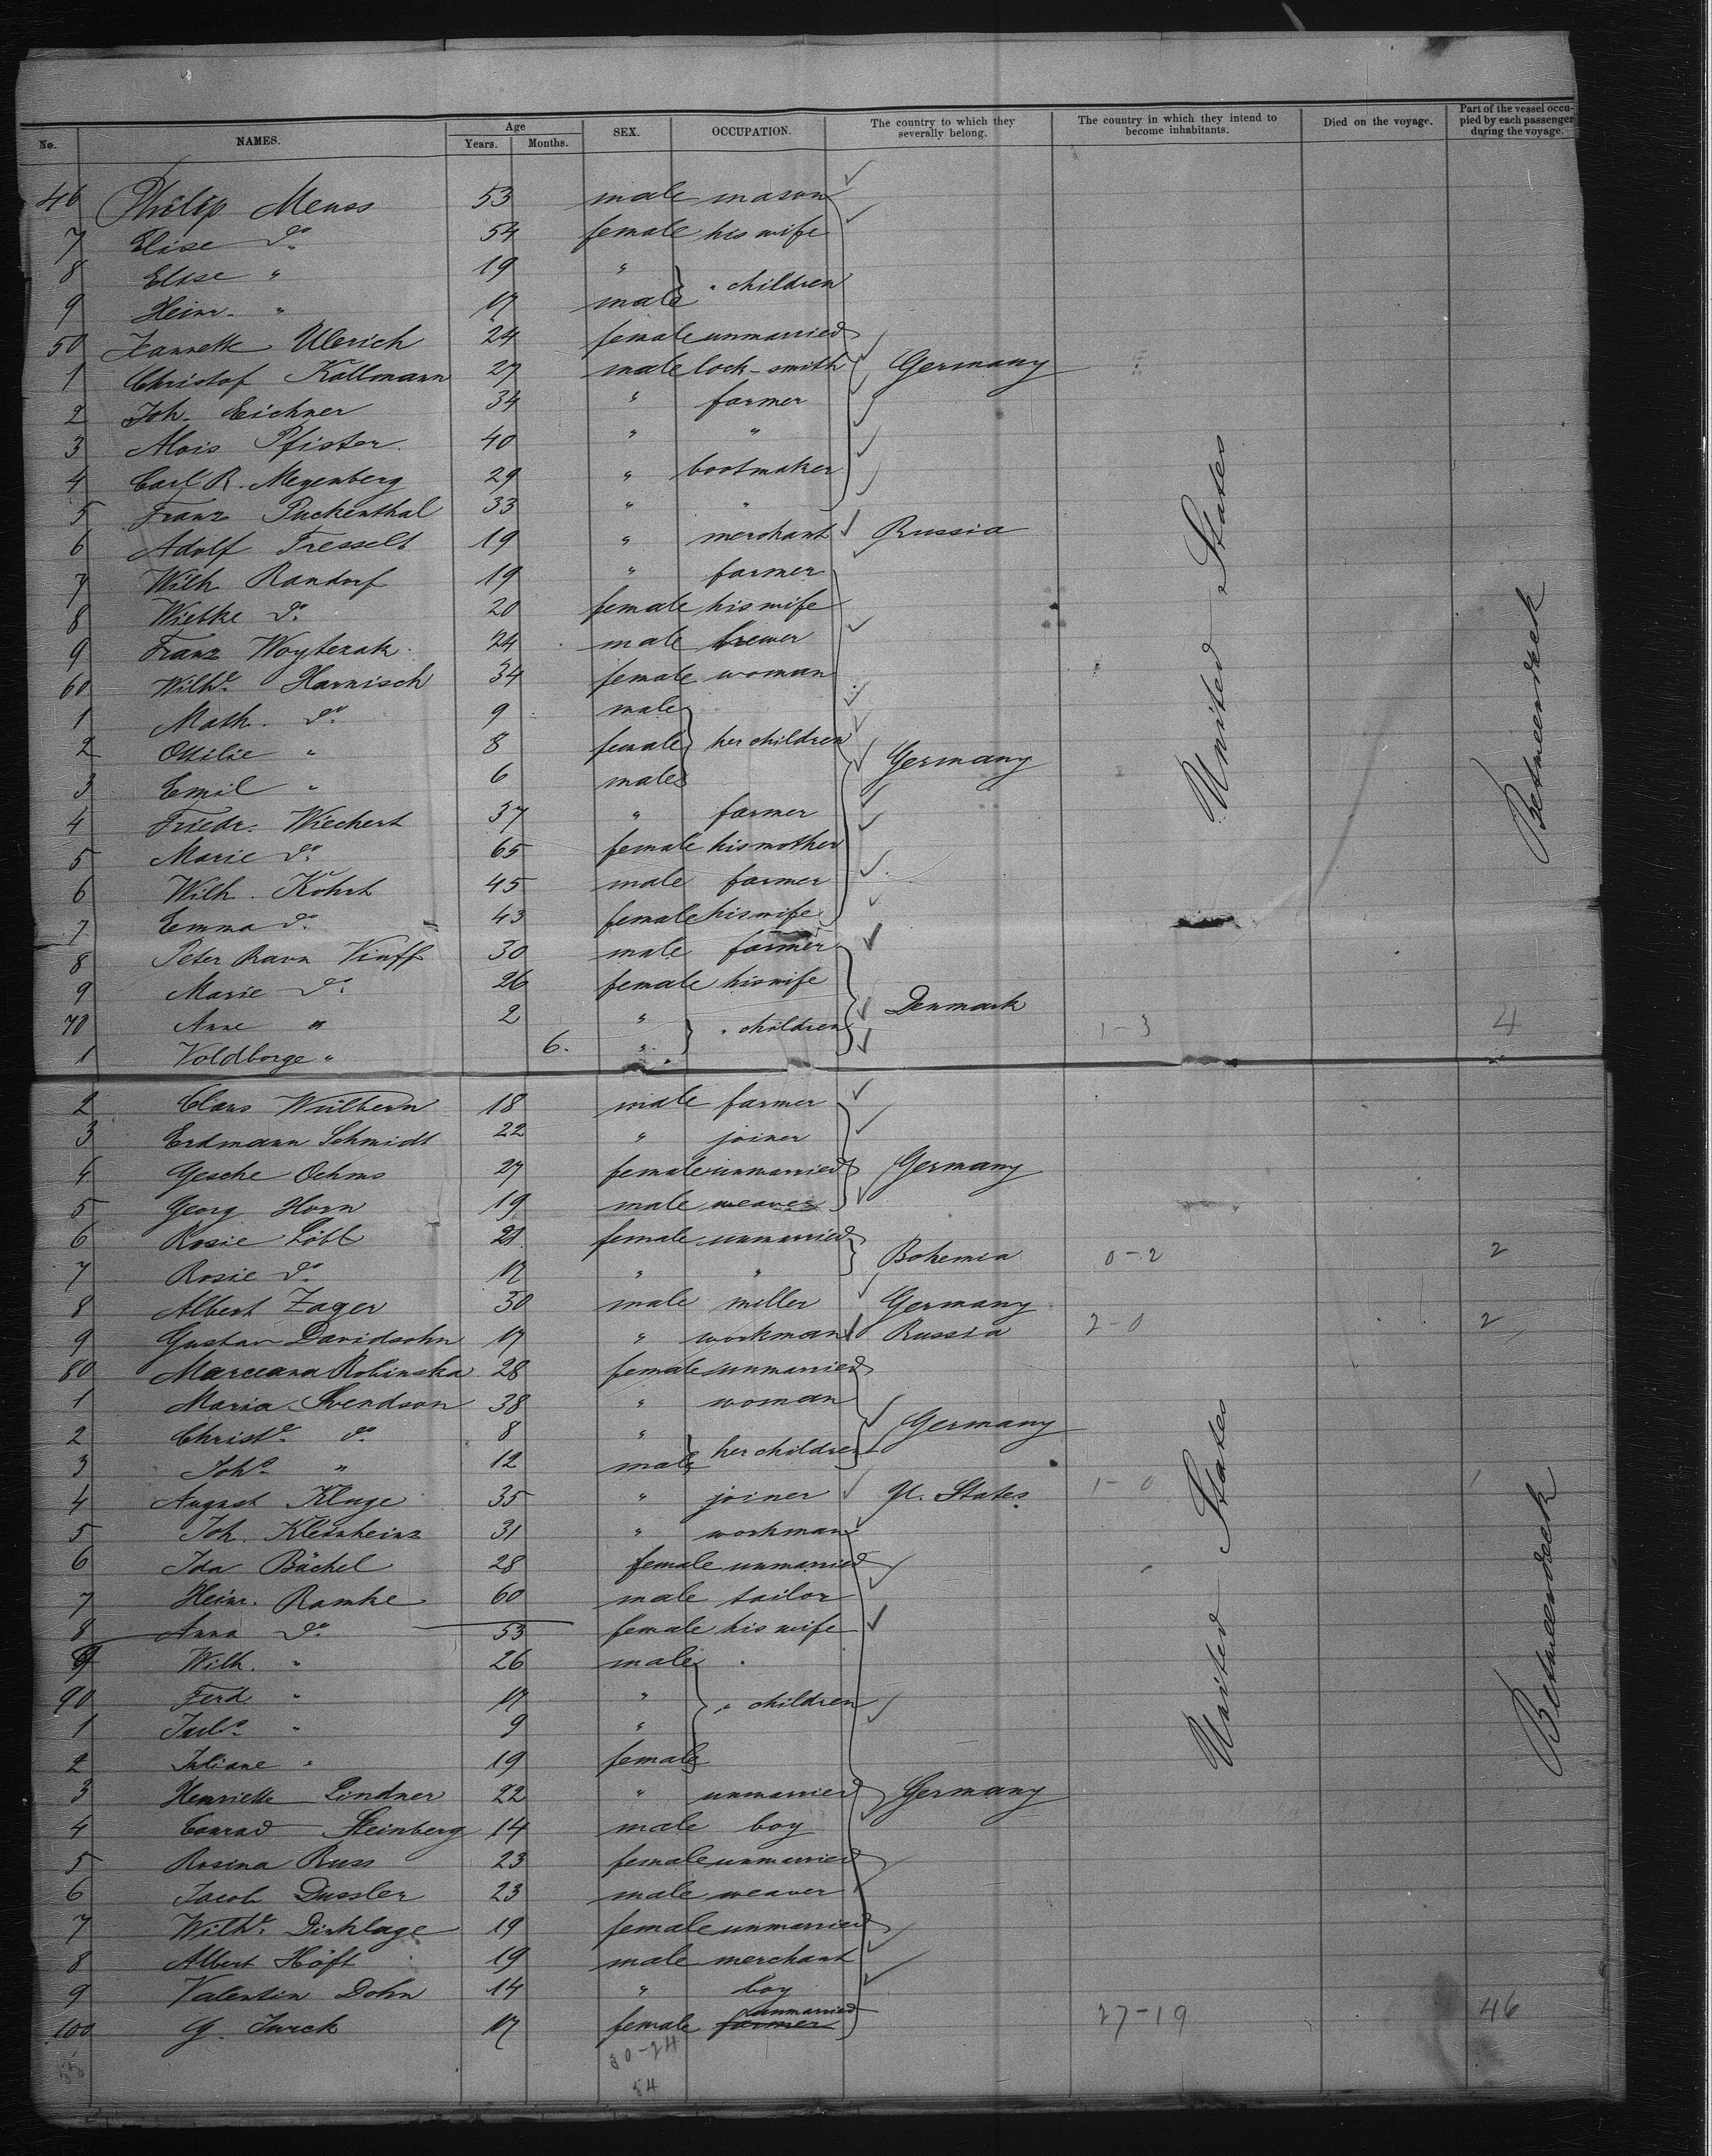 No. NAMES. Age Years. Months. SEX. OCCUPATION. The country to which they severally belong. The country in which they intend to become inhabitants. Died on the voyage. Part of the vessel occupied by each passenger during the voyage.
46 Philip Meuss 53 male mason
7 Elise do 54 female his wife
8 Elise " 19 " " children
9 Heinr. " 17 male
50 Zannette Ulerich 24 female unmarried
1 Christof Kollmann 27 male lock-smith Germany
2 Joh. Eichner 34 " farmer
3 Alois Pfister 40 " "
4 Carl R. Megenberg 29 " bootmaker
5 Franz Puckenthal 33 " "
6 Adolf Tresselt 19 " merchant Russia
7 Wilh Randorf 19 " farmer
8 Wiebke do 20 female his wife
9 Franz Woyterak 24 male brewer
60 Wilhe. Harnisch 34 female woman
1 Math. do 9 male
2 Ottilie " 8 female her children Germany
3 Emil " 6 male
4 Friedr. Wiechert 37 " farmer
5 Marie do 65 female his mother
6 Wilh. Kohrt 45 male farmer
7 Emma do 43 female his wife
8 Peter Ravn Vinff 30 male farmer
9 Marie do 26 female his wife
70 Ane " 2 " " children Denmark 1-3 4
1 Voldborge " 6. "
2 Claus Wülbern 18 male farmer
3 Erdmann Schmidt 22 " joiner
4 Gesche Oehms 27 female unmarried Germany
5 Georg Horn 19 male weaver
6 Rosie Löbl 21 female unmarried
7 Rosie do 17 " " Bohemia 0-2 2
8 Albert Zager 30 male miller Germany
9 Gustav Davidsohn 17 " workman Russia 2-0 2
80 Marceana Robinska 28 female unmarried
1 Maria Svendson 38 " woman
2 Christe. do 8 " her children Germany
3 Joho " 12 male
4 August Kluge 35 " joiner U. States 1-0 1
5 Joh. Kleinheinz 31 " workman
6 Ida Bächel 28 female unmarried
7 Heinr. Ramke 60 male tailor
8 Anna do 53 female his wife
9 Wilh. " 26 male
90 Ferd. " 17 " " children
1 Juls " 9 "
2 Juliane " 19 female
3 Henriette Lindner 22 " unmarried Germany
4 Conrad Steinberg 14 male boy
5 Rosina Russ 23 female unmarried
6 Jacob Dussler 23 male weaver
7 Wilhe. Dirklage 19 female unmarried
8 Albert Höft 19 male merchant
9 Valentin Dohn 14 " boy
100 G. Jurck 17 female farmer unmarried 27-19 46
30-24
54
United States
Betweendeck
United States
Betweendeck